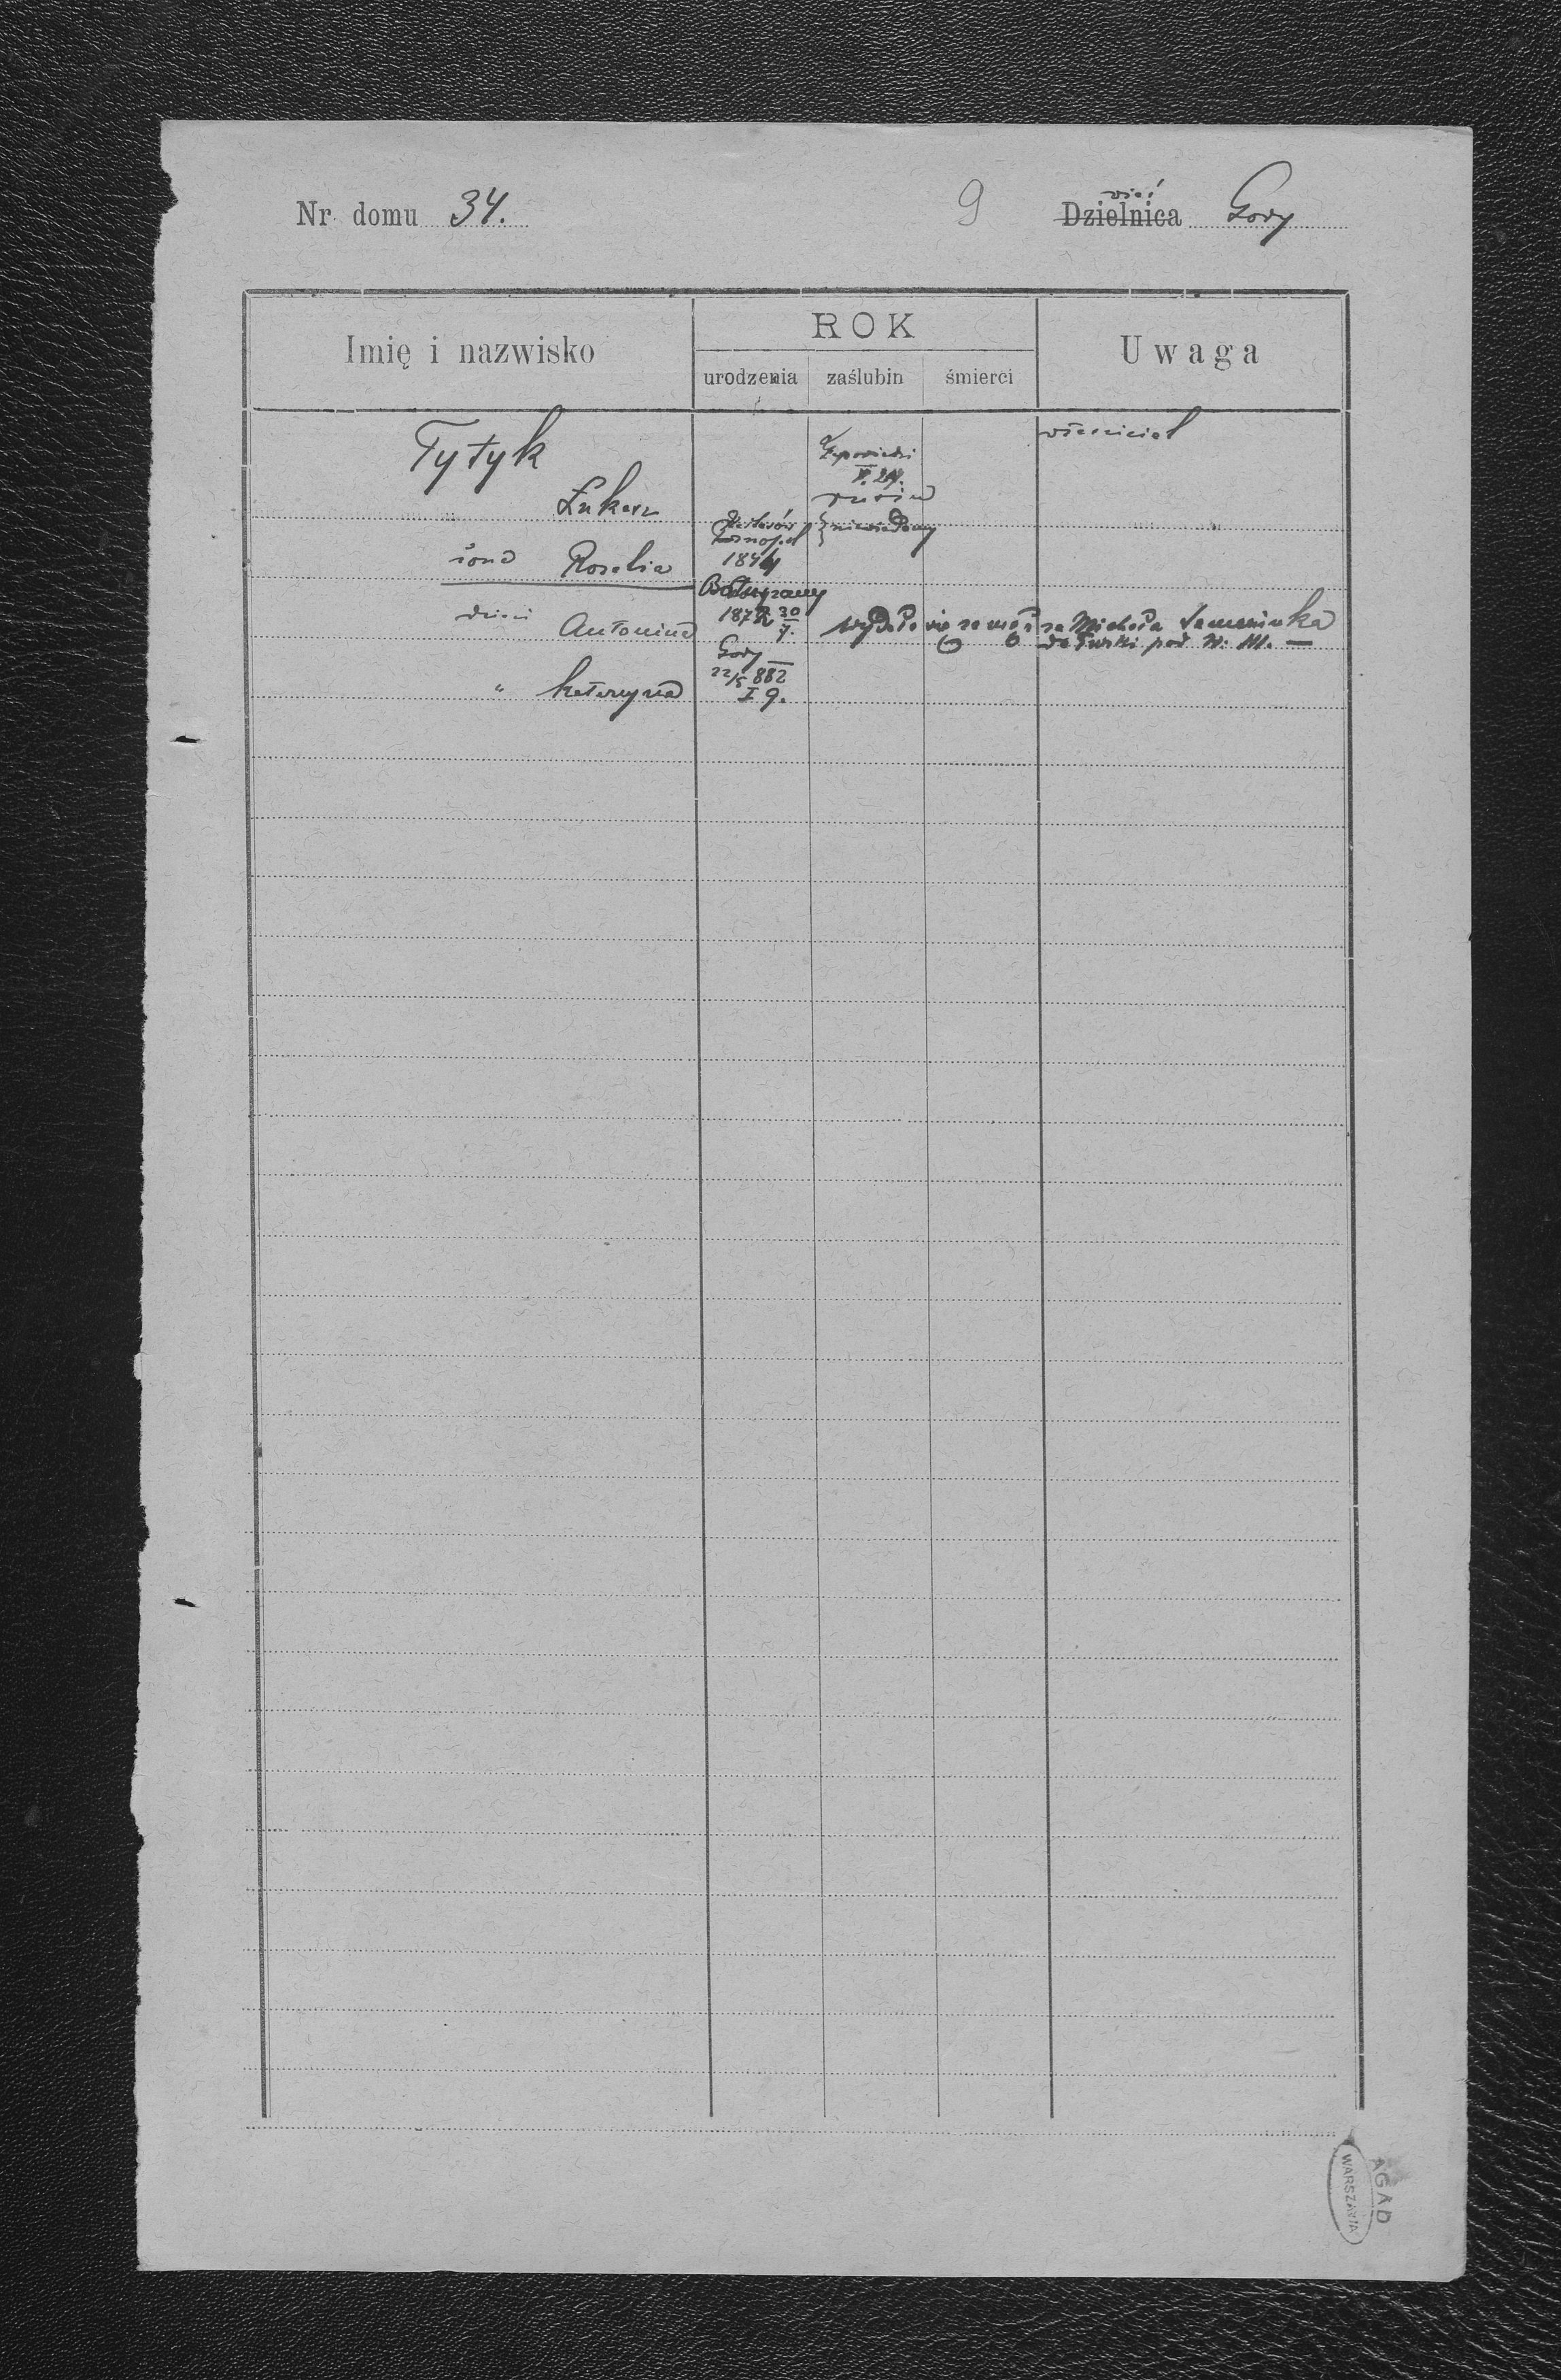 Nr domu 34.
9
wieś
Dzielnica Gory
Imię i nazwisko
ROK
urodzenia zaślubin śmierci
Uwaga
Tytyk
właściciel
Zapowiedzi
V. 24.
Łukasz
niewiadomy
żona Rozalia
Tarnopol
1844
dzieci Antonina
1872 30/7.
wydała się za mąż za Michała
do Turki pod N: 111. —
" Katarzyna
Gory
22/5 882
I 9.
AGAD
WARSZAWA